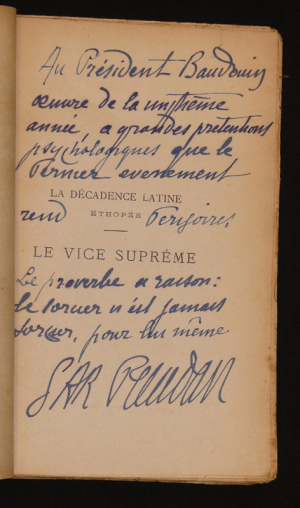 Au Président Baudouin
œuvre de la
année, a grandes pretentions
psychologiques que le
dernier evenement
LA DÉCADENCE LATINE
rend ÉTHOPÉE
LE VICE SUPRÊME
Le proverbe a raison:
le sorcier n'est jamais
sorcier, pour lui même
SAR Peladan